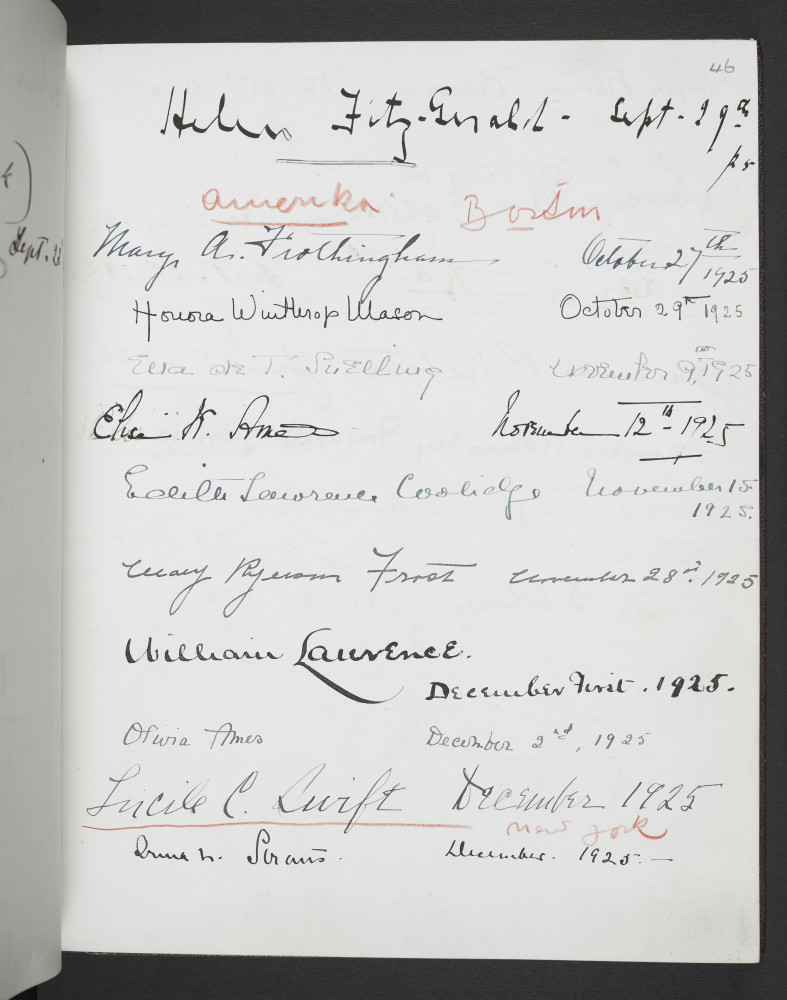 46
Helen Fitz-Gerald - Sept. 29th
/25
amerika. Boston
Mary A. Frothingham October 27th 1925
Honora Winthrop Mason October 29th 1925
de T. Snelling November 9th, 1925
K. Ames November 12th - 1925
Edith Lawrence Coolidge November 15
1925.
Mary Ryerson Frost November 28th. 1925
William Lawrence.
December First. 1925.
Olivia Ames December 2nd, 1925
Lucile C. Swift December 1925
new york
N. Straus. December. 1925. -
Sept. 22